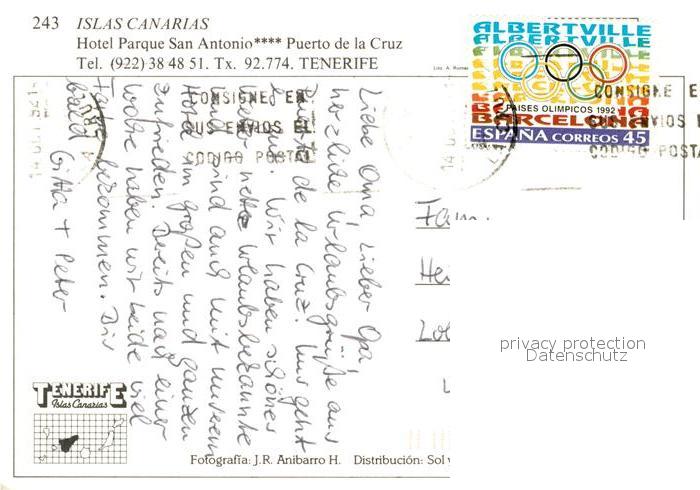 243 ISLAS CANARIAS
Hotel Parque San Antonio**** Puerto de la Cruz
Tel. (922) 38 48 51. Tx. 92.774. TENERIFE
ALBERTVILLE
ALBERTVILLE
PAISES OLIMPICOS 1992
BARCELONA
ESPAÑA CORREOS 45
CONSIGNE EN
SUS ENVIOS EL
CODIGO POSTAL
CONSIGNE E
SUS ENVIOS
CODIGO POSTA
Liebe Oma, Lieber Opa,
herzliche Urlaubsgrüße aus
Puerto de la Cruz. Uns geht
es gut. Wir haben schönes
nette Urlaubsbekannte
und sind auch mit unserem
Hotel im großen und ganzen
zufrieden. Bereits nach einer
Woche haben wir beide viel
Farbe bekommen. Bis
bald Gitta + Peter
Fam.
privacy protection
Datenschutz
TENERIFE
Islas Canarias
Fotografía: J.R. Anibarro H. Distribución: Sol